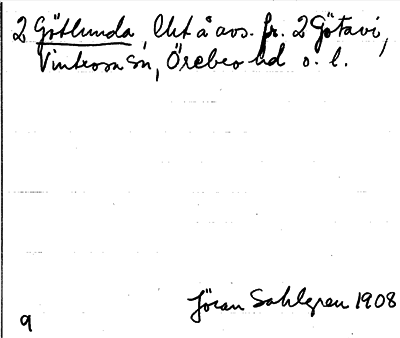 2 Götlunda, Utå avs. fr. 2 Götavi,
Vintrosa sn, Örebro hd o. l.
Jöran Sahlgren 1908
9